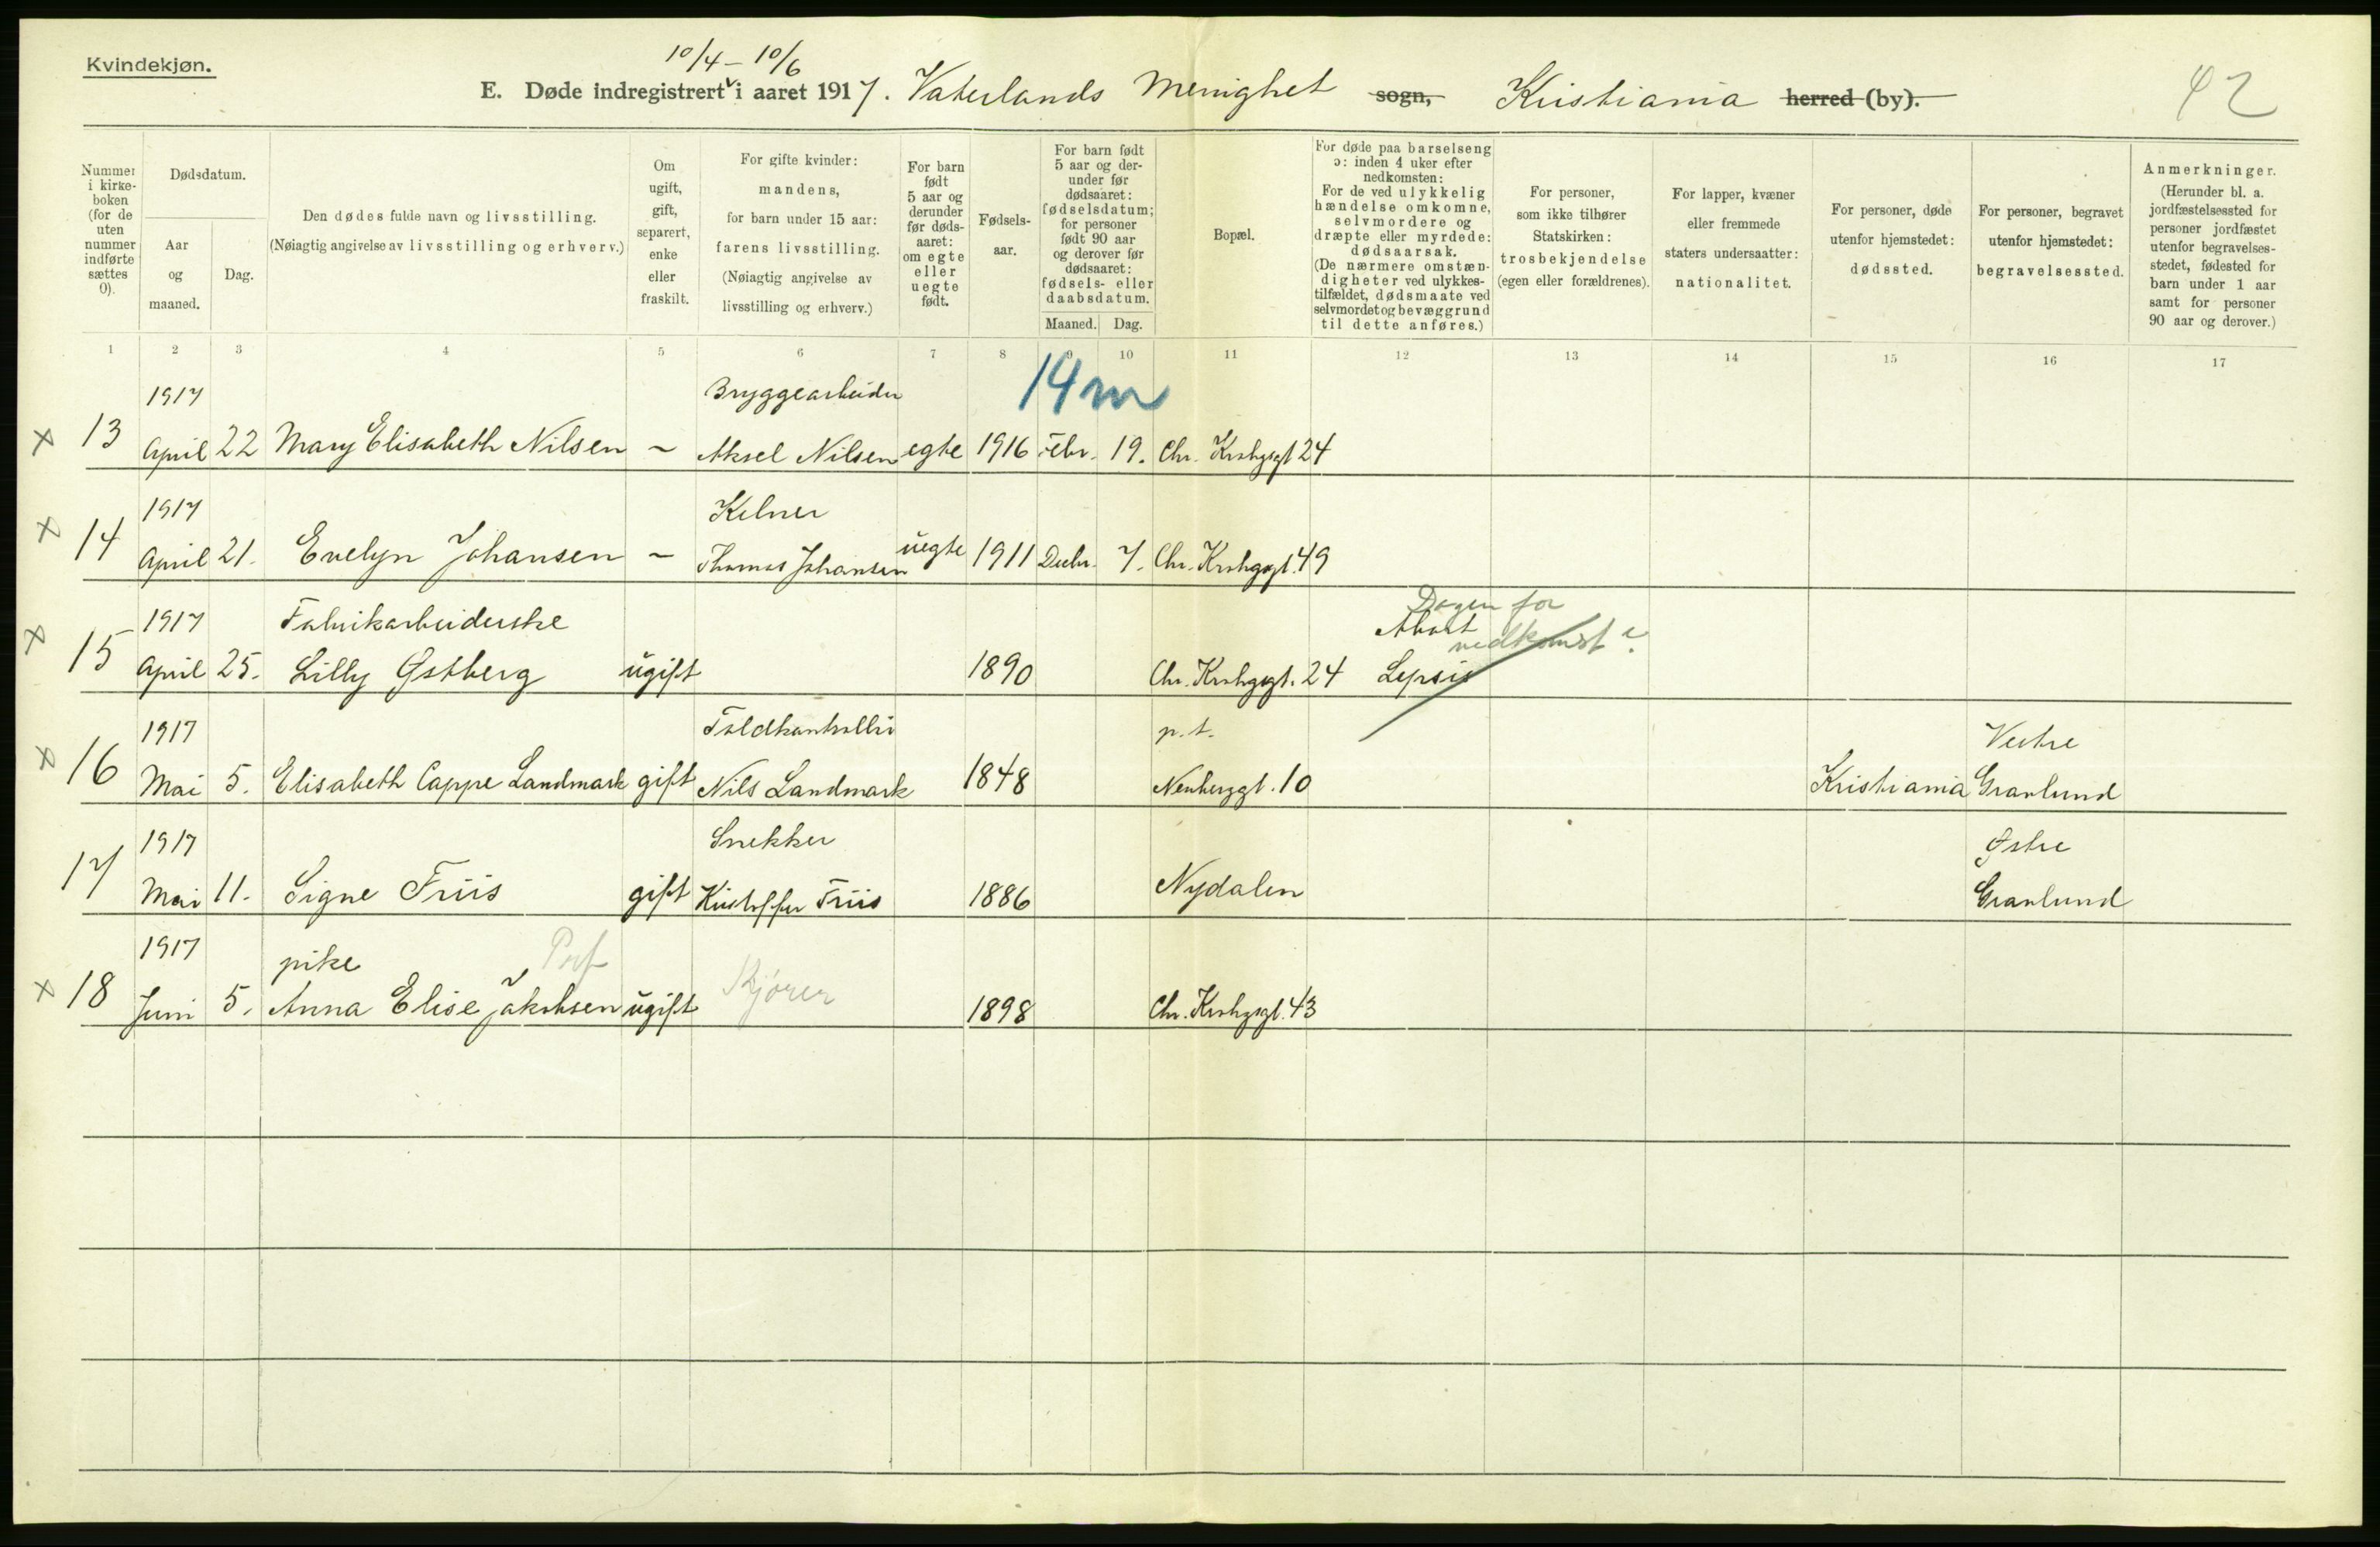 Kvindekjøn.
10/4 – 10/6
E. Døde indregistrert i aaret 1917. Vaterlands Menighet sogn, Kristiania herred (by).
42
Nummer i kirkeboken (for de uten nummer indførte sættes 0).
Dødsdatum.
Aar og maaned.
Dag.
Den dødes fulde navn og livsstilling.
(Nøiagtig angivelse av livsstilling og erhverv.)
Om ugift, gift, separert, enke eller fraskilt.
For gifte kvinder: mandens, for barn under 15 aar: farens livsstilling. (Nøiagtig angivelse av livsstilling og erhverv.)
For barn født 5 aar og derunder før dødsaaret: om egte eller uegte født.
Fødselsaar.
For barn født 5 aar og derunder før dødsaaret: fødselsdatum; for personer født 90 aar og derover før dødsaaret: fødsels- eller daabsdatum.
Maaned. Dag.
Bopæl.
For døde paa barselseng ɔ: inden 4 uker efter nedkomsten: For de ved ulykkelig hændelse omkomne, selvmordere og dræpte eller myrdede: dødsaarsak. (De nærmere omstændigheter ved ulykkestilfældet, dødsmaate ved selvmordet og bevæggrund til dette anføres.)
For personer, som ikke tilhører Statskirken: trosbekjendelse (egen eller forældrenes).
For lapper, kvæner eller fremmede staters undersaatter: nationalitet.
For personer, døde utenfor hjemstedet: dødssted.
For personer, begravet utenfor hjemstedet: begravelsessted.
Anmerkninger. (Herunder bl. a. jordfæstelsessted for personer jordfæstet utenfor begravelsesstedet, fødested for barn under 1 aar samt for personer 90 aar og derover.)
1 2 3 4 5 6 7 8 9 10 11 12 13 14 15 16 17
14 m
1917 Bryggearbeider
x 13 April 22 Mary Elisabeth Nilsen – Aksel Nilsen egte 1916 Febr. 19. Chr. Krohgsgt 24
1917 Kelner
x 14 April 21. Evelyn Johansen – Thomas Johansen uegte 1911 Decbr. 7. Chr. Krohgsgt. 49
1917 Fabrikarbeiderske Abort Dagen før nedkomst?
x 15 April 25. Lilly Østberg ugift 1890 Chr. Krohgsgt. 24 Sepsis
1917 Toldkontrollør p.t. Vestre
x 16 Mai 5. Elisabeth Cappe Landmark gift Nils Landmark 1848 Neuberggt. 10 Kristiania Gravlund
1917 Snekker Østre
17 Mai 11. Signe Friis gift Kristoffer Friis 1886 Nydalen Gravlund
1917 pike
x 18 Juni 5. Anna Elise Jakobsen ugift Kjører 1898 Chr. Krohgsgt. 43